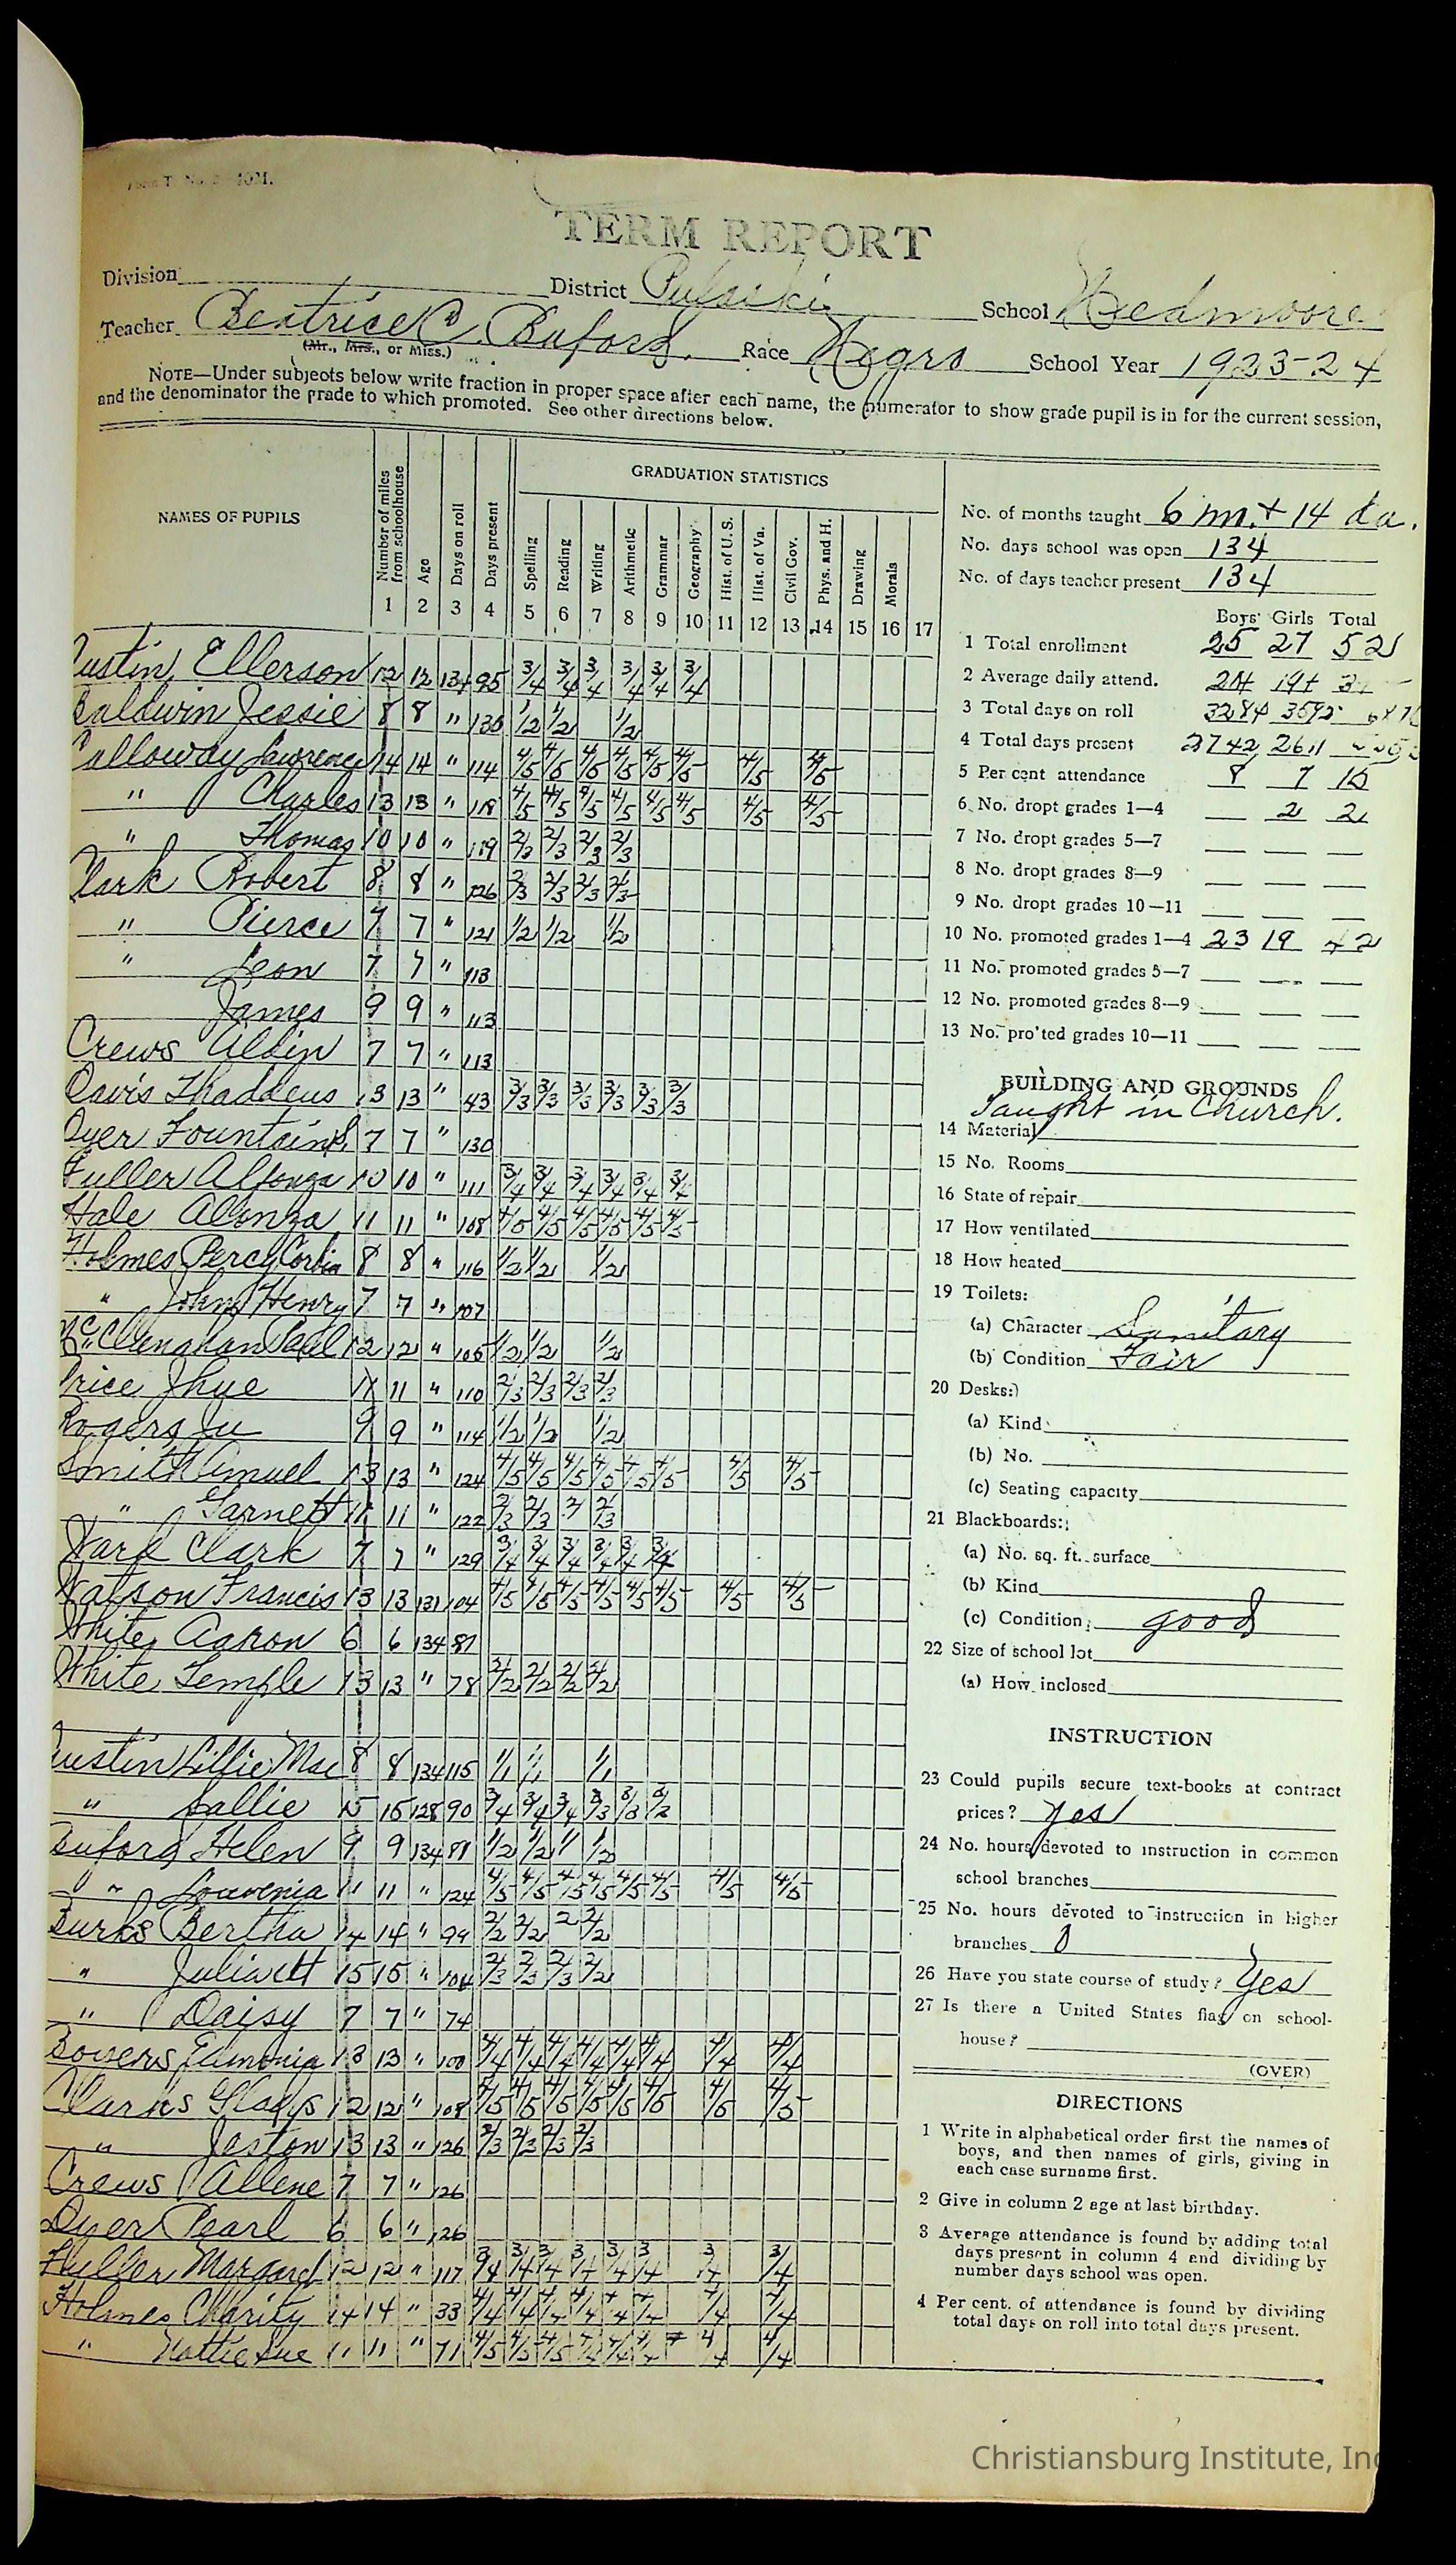 TERM REPORT
Division District Pulaski School
Teacher Beatrice C. Buford. Race Negro School Year 1923-24
(Mr., Mrs., or Miss.)
NOTE—Under subjects below write fraction in proper space after each name, the numerator to show grade pupil is in for the current session,
and the denominator the grade to which promoted. See other directions below.
NAMES OF PUPILS
Number of miles from schoolhouse
Age
Days on roll
Days present
GRADUATION STATISTICS
Spelling
Reading
Writing
Arithmetic
Grammar
Geography
Hist. of U. S.
Hist. of Va.
Civil Gov.
Phys. and H.
Drawing
Morals
1 2 3 4 5 6 7 8 9 10 11 12 13 14 15 16 17
Austin, Ellerson 12 12 134 95 3/4 3/4 3/4 3/4 3/4 3/4
Baldwin Jessie 8 8 " 130 1/2 1/2 1/2
Calloway Lawrence 14 14 " 114 4/5 4/5 4/5 4/5 4/5 4/5 4/5 4/5
" Charles 13 13 " 118 4/5 4/5 4/5 4/5 4/5 4/5 4/5 4/5
" Thomas 10 10 " 119 2/3 2/3 2/3 2/3
Clark Robert 8 8 " 126 2/3 2/3 2/3 2/3
" Pierce 7 7 " 121 1/2 1/2 1/2
" Leon 7 7 " 113
James 9 9 " 113
Crews Albin 7 7 " 113
Davis Thaddeus 13 13 " 43 3/3 3/3 3/3 3/3 3/3 3/3
Dyer Fountain 7 7 " 130
Fuller Alfonza 10 10 " 111 3/4 3/4 3/4 3/4 3/4 3/4
Hale Alonza 11 11 " 108 4/5 4/5 4/5 4/5 4/5 4/5
Holmes Percy Corbin 8 8 " 116 1/2 1/2 1/2
" John Henry 7 7 " 107
McClenghan Paul 12 12 " 105 1/2 1/2 1/2
Price 11 11 " 110 2/3 2/3 2/3 2/3
Rogers 9 9 " 114 1/2 1/2 1/2
Smith 13 13 " 124 4/5 4/5 4/5 4/5 4/5 4/5 4/5 4/5
" Garnett 11 11 " 122 2/3 2/3 2/3
Ward Clark 7 7 " 129 3/4 3/4 3/4 3/4 3/4 3/4
Watson Francis 13 13 131 104 4/5 4/5 4/5 4/5 4/5 4/5 4/5 4/5
White, Aaron 6 6 134 87
White, Temple 13 13 " 78 2/2 2/2 2/2 2/2
Austin Lillie Mae 8 8 134 115 1/1 1/1 1/1
" Sallie 15 15 128 90 3/4 3/4 3/4
Buford Helen 9 9 134 81 1/2 1/2 1/2
" Louvenia 11 11 " 124 4/5 4/5 4/5 4/5 4/5 4/5 4/5 4/5
Burks Bertha 14 14 " 99 2/2 2/2 2 2/2
" Juliett 15 15 " 104 2/3 2/3 2/3 2/2
" Daisy 7 7 " 74
Bowers 13 13 " 100 4/4 4/4 4/4 4/4 4/4 4/4 4/4 4/4
Clarks Gladys 12 12 " 108 4/5 4/5 4/5 4/5 4/5 4/5 4/5 4/5
" 13 13 " 126 2/3 2/3 2/3 2/3
Crews Allene 7 7 " 126
Dyer Pearl 6 6 " 126
Fuller Margaret 12 12 " 117 3/4 3/4 3/4 3/4 3/4 3/4 3/4 3/4
Holmes Charity 14 14 " 33 4/4 4/4 4/4 4/4 4/4 4/4 4/4 4/4
" Hattie Sue 11 11 " 71 4/5 4/5 4/5
No. of months taught 6 m. + 14 da.
No. days school was open 134
No. of days teacher present 134
Boys Girls Total
1 Total enrollment 25 27 52
2 Average daily attend.
3 Total days on roll 3284
4 Total days present 2742 2611
5 Per cent attendance
6 No. dropt grades 1—4 2 2
7 No. dropt grades 5—7
8 No. dropt grades 8—9
9 No. dropt grades 10—11
10 No. promoted grades 1—4 23 19 42
11 No. promoted grades 5—7
12 No. promoted grades 8—9
13 No. pro'ted grades 10—11
BUILDING AND GROUNDS
Taught in Church.
14 Material
15 No. Rooms
16 State of repair
17 How ventilated
18 How heated
19 Toilets:
(a) Character Sanitary
(b) Condition Fair
20 Desks:
(a) Kind
(b) No.
(c) Seating capacity
21 Blackboards:
(a) No. sq. ft. surface
(b) Kind
(c) Condition good
22 Size of school lot
(a) How inclosed
INSTRUCTION
23 Could pupils secure text-books at contract
prices? yes
24 No. hours devoted to instruction in common
school branches
25 No. hours devoted to instruction in higher
branches 0
26 Have you state course of study? Yes
27 Is there a United States flag on school-
house?
(OVER)
DIRECTIONS
1 Write in alphabetical order first the names of
boys, and then names of girls, giving in
each case surname first.
2 Give in column 2 age at last birthday.
3 Average attendance is found by adding total
days present in column 4 and dividing by
number days school was open.
4 Per cent. of attendance is found by dividing
total days on roll into total days present.
Christiansburg Institute, Inc